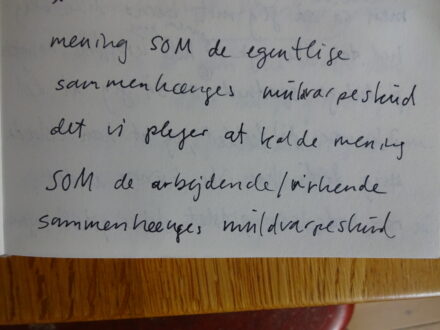 mening SOM de egentlige
sammenhænges muldvarpeskud
det vi plejer at kalde mening
SOM de arbejdende/virkende
sammenhænges muldvarpeskud